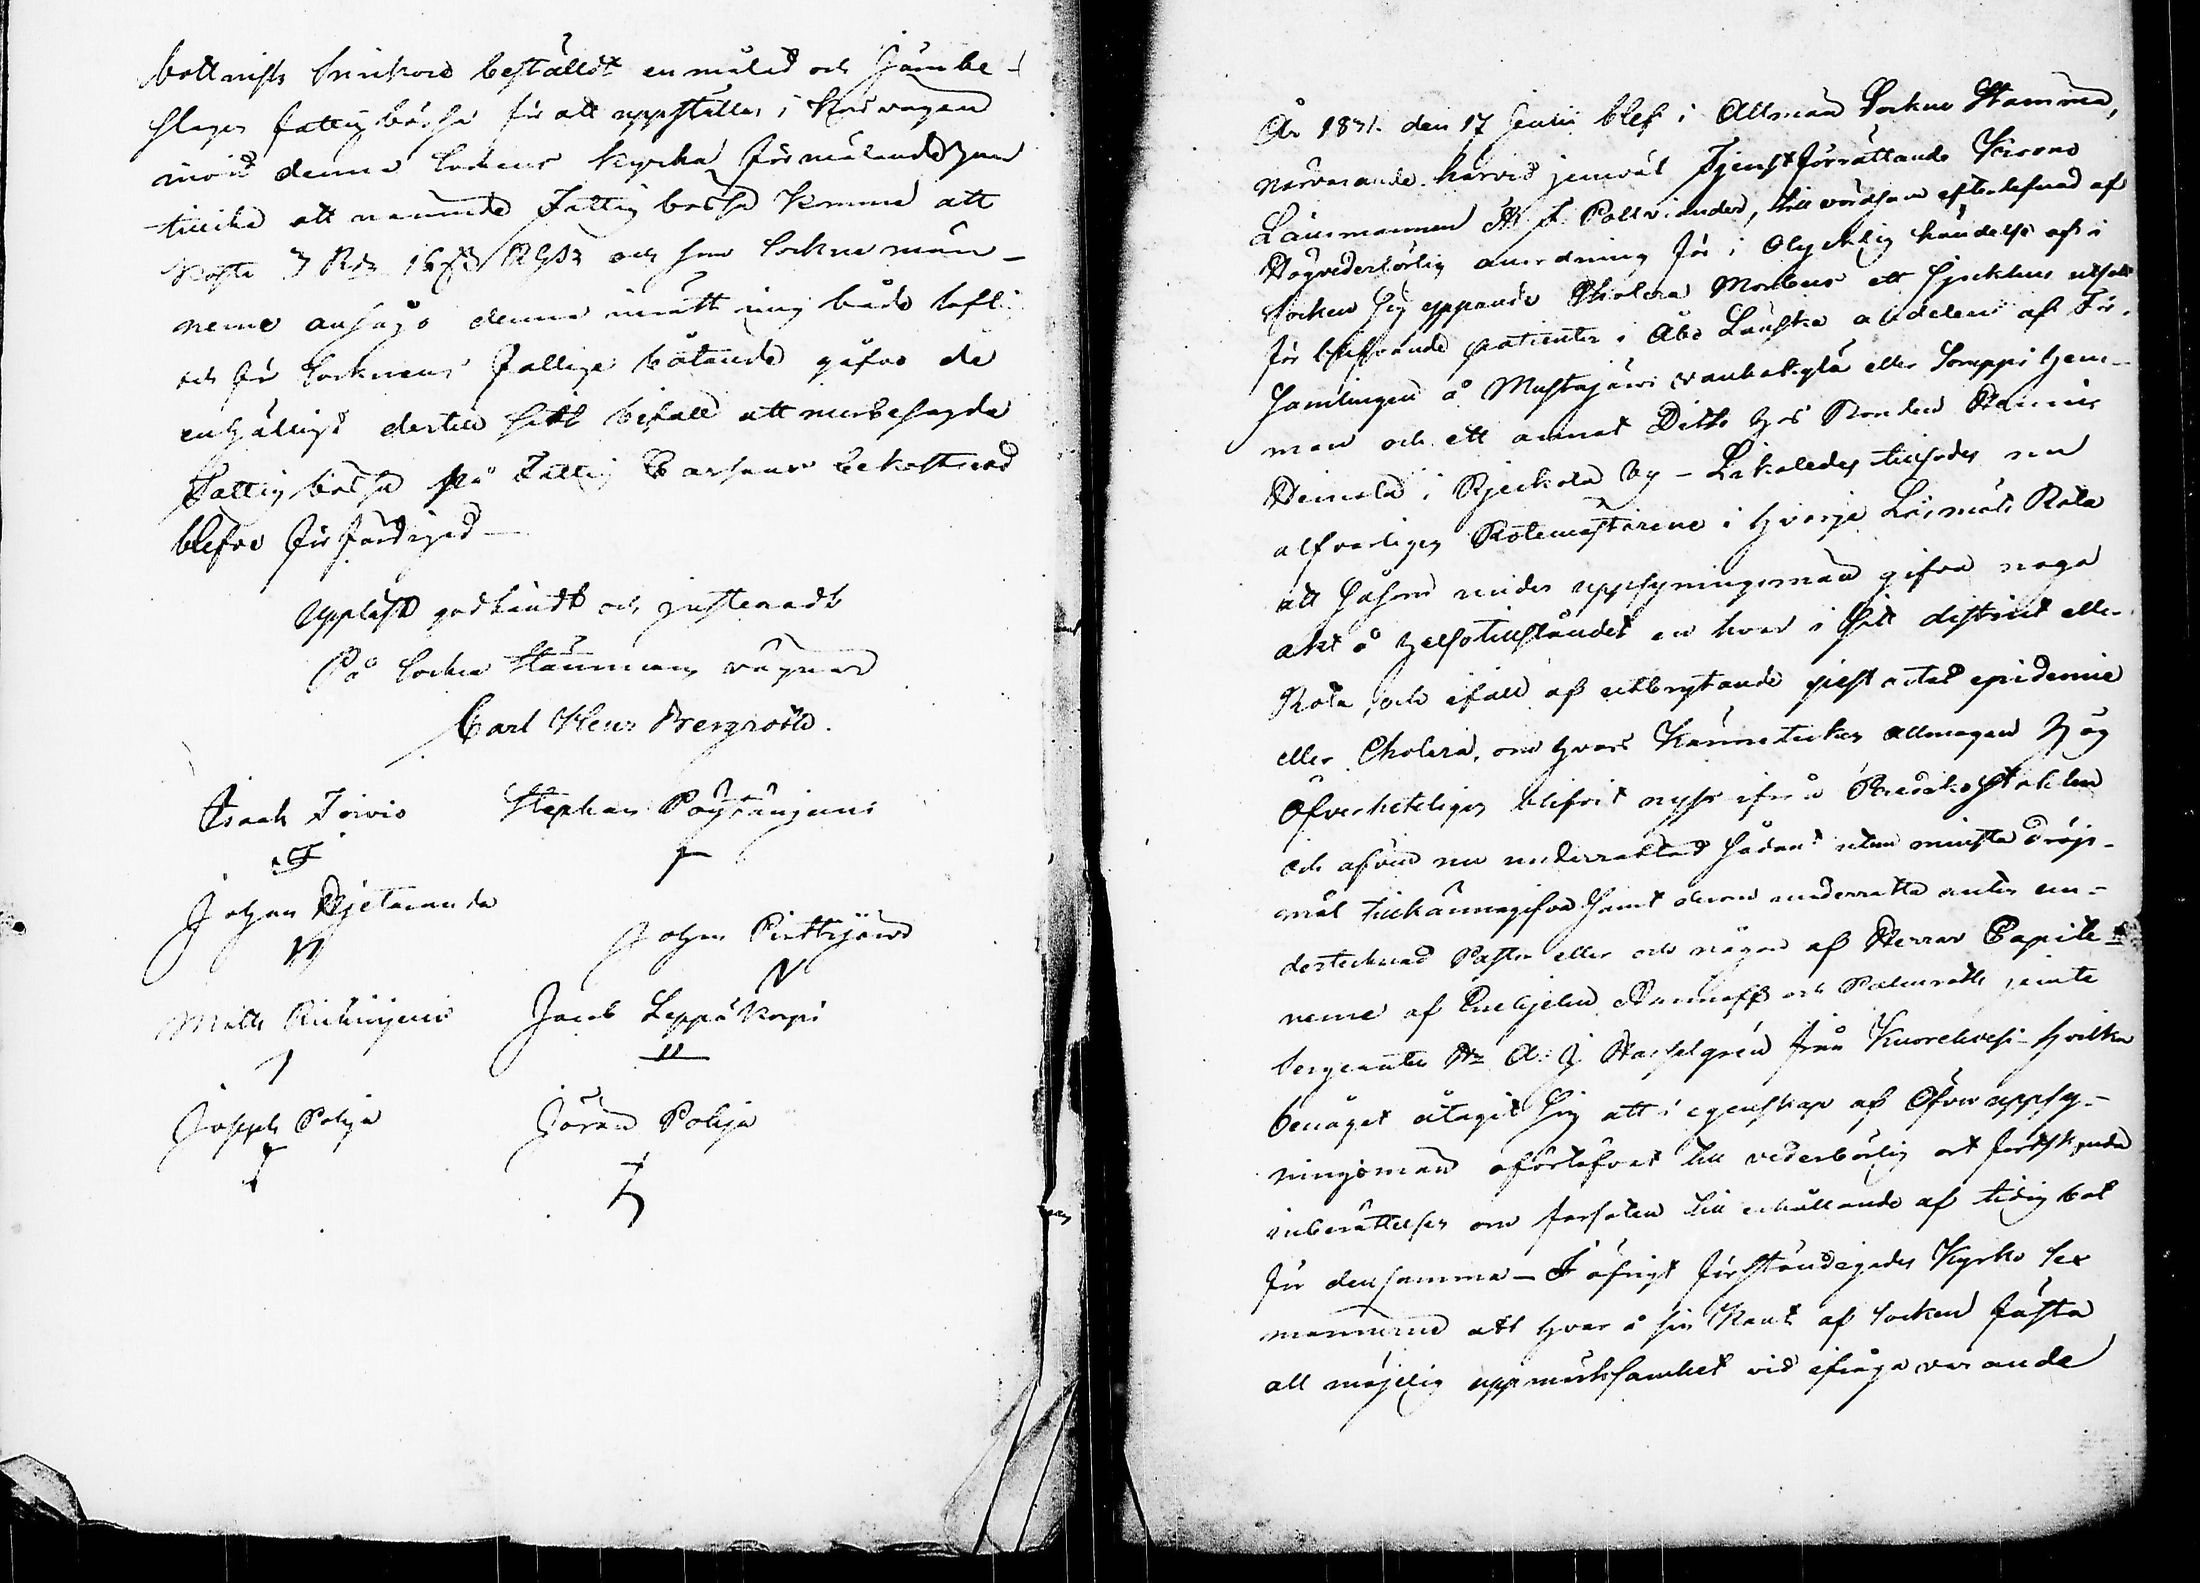 beställdt en målad och järnbe-
slagen fattigbössa för att uppställas i
invid denna Sockens Kyrka, förmälandes han
tillika att nämnde Fattigbössa komme att
kosta 7 Rdr 16 ß och som Sockne män-
nerne ansågo denna inrättning både
och för Socknens Fattige båtande gåfvo de
enhälligt dertill sitt bifall att merbesagde
Fattigbössa på Fattig Cassans bekostnad
blefve förfärdigad —
Uppläst godkändt och justeradt
På Socken Stämmans vägnar
Carl Henr Bergroth.
Isaak Toivio Stephan Pöytäniemi
Johan Hjetaranda
Johan Pirttijärvi
Matts Jacob Leppäkorpi
Joseph Pohja Jöran Pohja
År 1831. den 17 Julii blef i Allmän Sockne Stämma,
närvarande härvid jemväl Tjenstförrättande Krono
Länsmannen till vördsam efterlefnad af
Högvederbörlig anordning för i Olycklig händelse af i
Socken sig yppande Cholera Morbus ett sjukhus utsedt
för behöfvande patienter i Åbo Länska andelen af För-
samlingen å Mustajärvi Vanhakylä eller Hem-
man och ett annat Ditto hos Bonden
i by – Likaledes tillsades nu
alfvarligen Rotemästarene i hvarje Läsmöts Rote
att såsom under uppsyningsmän gifva noga
akt å helsotillståndet en hvar i sitt district eller
Rote, och ifall af utbrytande epidemie
eller Cholera, om hvars Kännetecken allmogen hög
Öfverhetligen blifvit nyss ifrån Predikostohlen
och äfven nu underrättad sådant utan minsta dröjs-
mål tillkännagifva samt derom underrätta antingen un-
dertecknad Pastor eller och någon af Herrar Capite-
nerne af och Palmroth jemte
Sergeanten Hr A: J Hasselgrén från Kuorehvesi hvilka
benäget åtagit sig att i egenskap af Öfver uppsy-
ningsmän oförtöfvat till vederbörlig ort fortskynda
inberättelser om farsoten till erhållande af tidig bot
för densamma — I öfrigt förständigades Kyrko Sex
männerne att hvar å sin Kant af Socken fästa
all möjelig uppmärksamhet vid ifråga varande